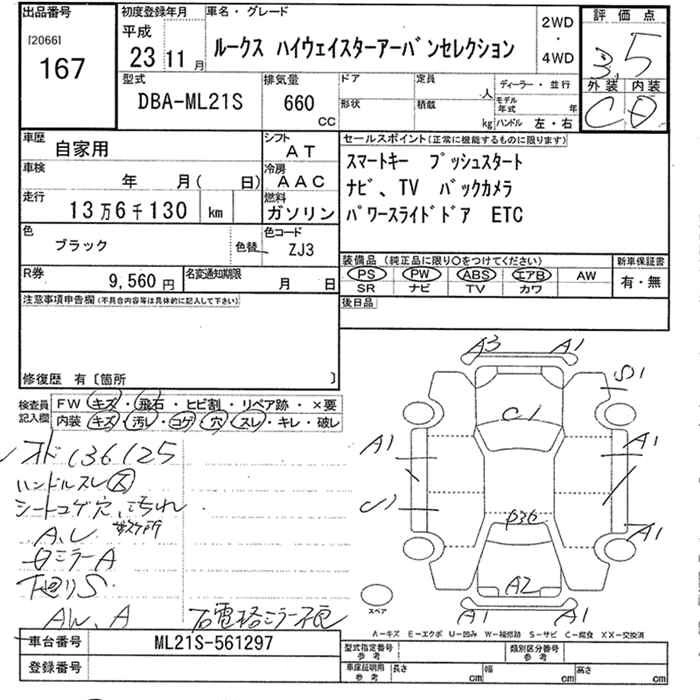 出品番号
[2066]
167
初度登録年月
平成
23 11 月
車名・グレード
ルークス ハイウェイスターアーバンセレクション
2WD
・
4WD
評価点
3.5
外装 内装
C D
型式
DBA-ML21S
排気量
660
CC
ドア
形状
定員
人
積載
kg
ディーラー・並行
モデル年式 年
ハンドル 左・右
車歴
自家用
シフト
AT
車検
年 月( 日)
冷房
AAC
走行
13万6千130 km
燃料
ガソリン
色
ブラック
色替
色コード
ZJ3
R券
9,560 円
名変通知期限
月 日
セールスポイント(正常に機能するものに限ります)
スマートキー プッシュスタート
ナビ、TV バックカメラ
パワースライドドア ETC
装備品 (純正品に限り○をつけてください)
新車保証書
PS PW ABS エアB AW
SR ナビ TV カワ
有・無
後日品
注意事項申告欄(不具合内容等は具体的に記入して下さい)
修復歴 有〔箇所 〕
検査員記入欄
FW キズ・飛石・ヒビ割・リペア跡・×要
内装 キズ・汚レ・コゲ・穴・スレ・キレ・破レ
136125
ハンドルスレ
シートコゲ穴、汚れ
A、U
ミラーA
下廻りS
AW、A
A3 A1
S1
C1
A1 A1
U1
A1
A2
A1 A1
スペア
A-キズ E-エクボ U-凹み W-補修跡 S-サビ C-腐食 XX-交換済
車台番号
ML21S-561297
登録番号
型式指定番号
参考
類別区分番号
参考
車庫証明用
参考
長さ cm
幅 cm
高さ cm